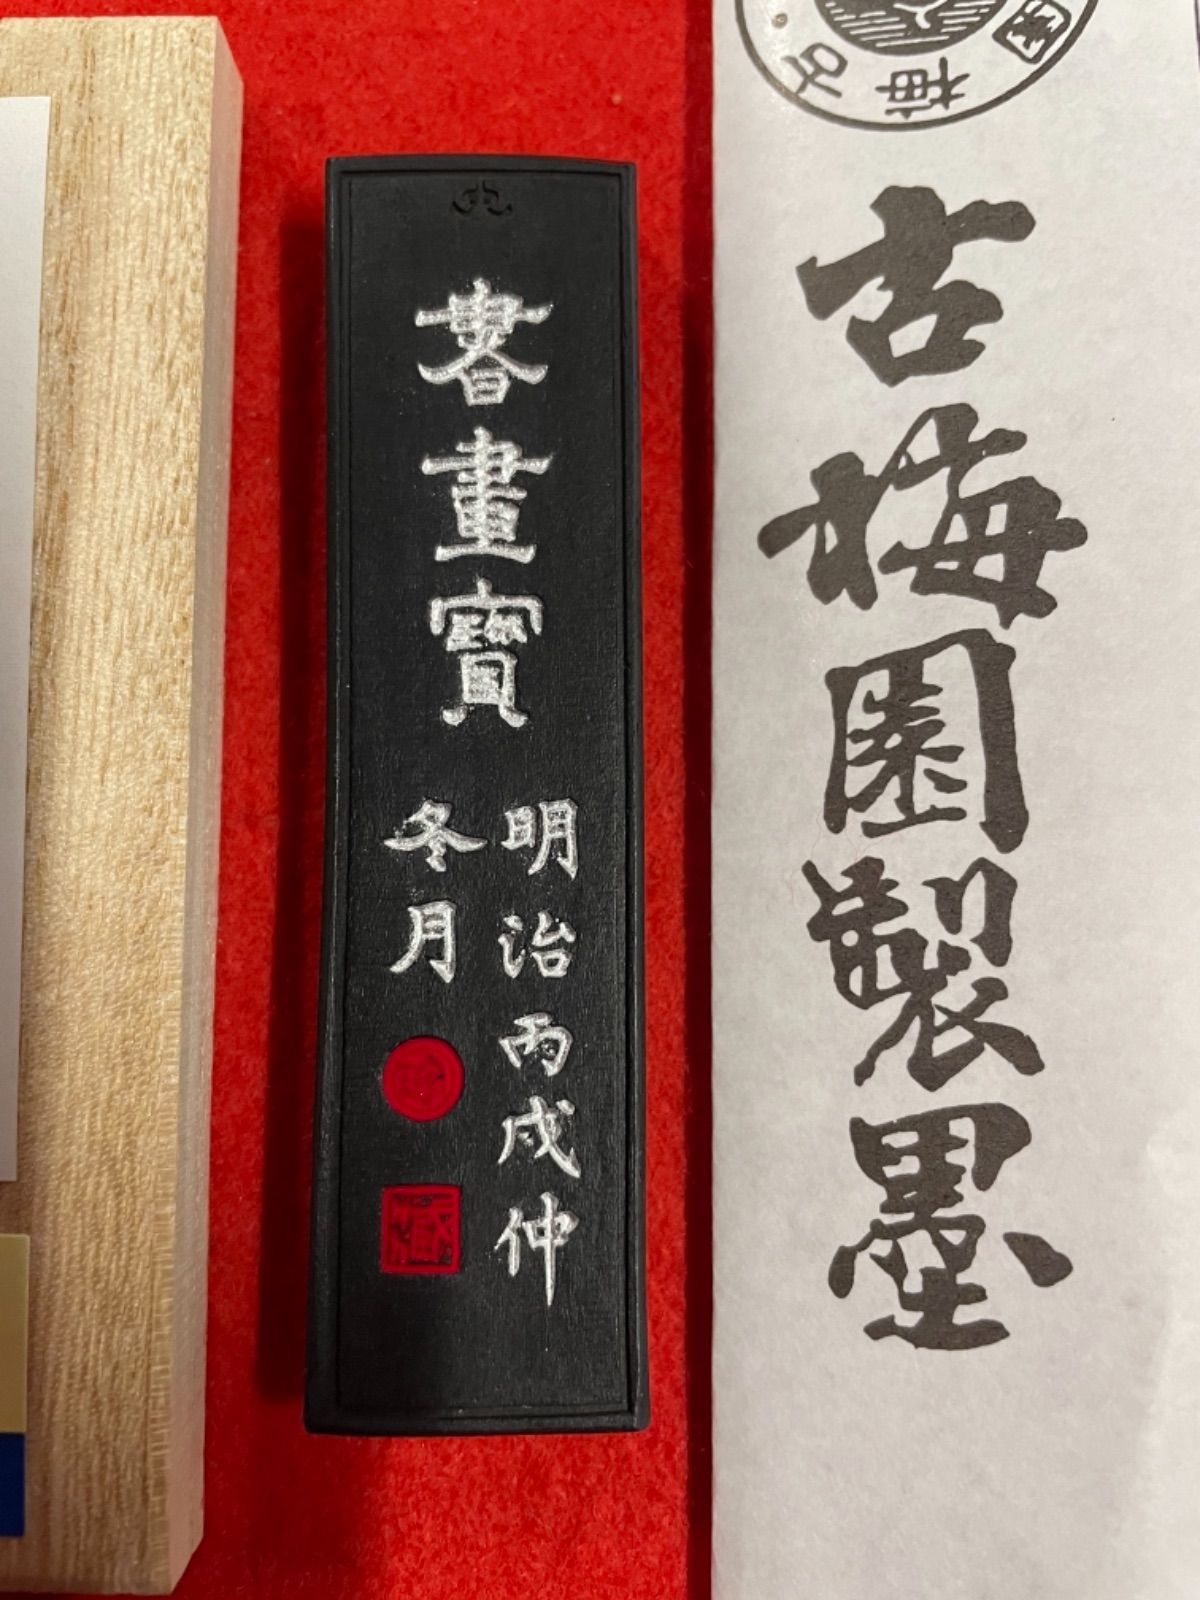 古梅園
古梅園製墨
書畫寶
明治丙戌仲
冬月